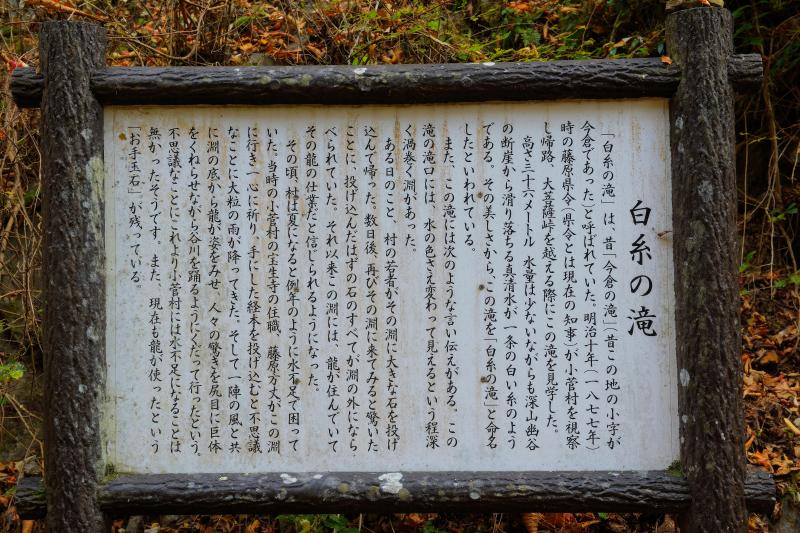 白糸の滝
「白糸の滝」は、昔「今倉の滝」（昔この地の小字が
今倉であった）と呼ばれていた。明治十年（一八七七年）
時の藤原県令（県令とは現在の知事）が小菅村を視察
し帰路、大菩薩峠を越える際にこの滝を見学した。
高さ三十六メートル 水量は少ないながらも深山幽谷
の断崖から滑り落ちる真清水が一条の白い糸のよう
である。その美しさから、この滝を「白糸の滝」と命名
したといわれている。
また、この滝には次のような言い伝えがある。この
滝の滝口には、水の色さえ変わって見えるという程深
く渦巻く淵があった。
ある日のこと、村の若者がその淵に大きな石を投げ
込んで帰った。数日後、再びその淵に来てみると驚いた
ことに、投げ込んだはずの石のすべてが淵の外になら
べられていた。それ以来この淵には、龍が住んでいて
その龍の仕業だと信じられるようになった。
その頃、村は夏になると例年のように水不足で困って
いた。当時の小菅村の宝生寺の住職、藤原方丈がこの淵
に行き一心に祈り、手にした経本を投げ込むと不思議
なことに大粒の雨が降ってきた。そして一陣の風と共
に淵の底から龍が姿をみせ、人々の驚きを尻目に巨体
をくねらせながら谷川を踊るようにくだって行ったという。
不思議なことにこれより小菅村には水不足になることは
無かったそうです。また、現在も龍が使ったという
「お手玉石」が残っている。